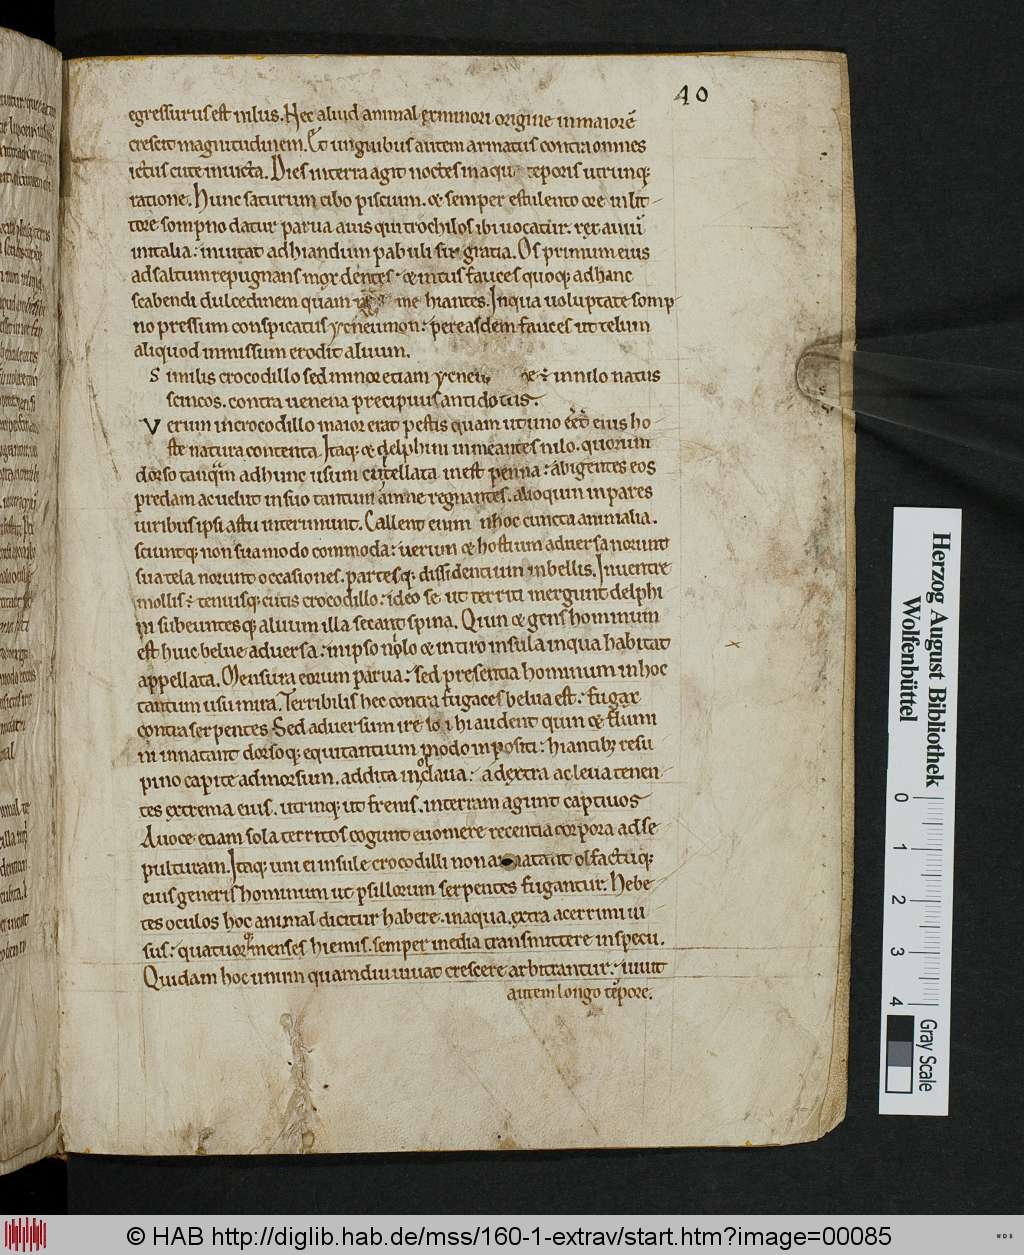 40
egressurus est nilus. Nec aliud animal ex minori origine in maiorē
crescit magnitudinem. Et unguibus autem armatus contra omnes
ictus cute invicta. Dies in terra agit noctes in aqu teporis utrinq;
ratione. Hunc saturum cibo piscium. & semper esculento ore in lit
tore sompno datur parua auis qui trochilos ibi uocatur. rex auiū
in italia: inuitat ad hiandum pabuli sui gratia. Os primum eius
adsaltum repugnans mox dentes & intus fauces quoq; ad hanc
scabendi dulcedinem quam hiantes. In qua uoluptate somp
no pressum conspicatus ycneumon: per easdem fauces ut telum
aliquod inmissum erodit aluum.
Similis crocodillo sed minor etiam ycneu in nilo natus
scincos. contra uenena precipuus antidotus.
Verum in crocodillo maior erat pestis quam ut uno eēt eius ho
ste natura contenta. Itaq; & delphini in meantes nilo. quorum
dorso tanqm̄ ad hunc usum cutellata inest penna: abigentes eos
predam ac uelut in suo tantum amne regnantes. alioquin inpares
uiribus ipsi astu interimunt. Callent enim hoc cuncta animalia.
sciuntq; non sua modo commoda: uerum & hostium aduersa norunt
sua tela norunt occasiones. partesq; dissidentium inbellis. In uentre
mollis ē tenuisq; cutis crocodillo: ideo se ut territi mergunt delphi
ni subeuntesq; aluum illa secant spina. Quin & gens hominum
est huic belue aduersa: in ipso nilo & intiro insula in qua habitat
appellata. Mensura eorum parua: sed presentia hominum in hoc
tantum usu mira. Terribilis hec contra fugaces belua est: fugax
contra serpentes. Sed aduersum ire hi audent quin & flumi
ni innatant dorsoq; equitantium modo inpositi: hiantibȝ resu
pino capite ad morsum. addita in os claua: a dextra ac leua tenen
tes extrema eius. utrinq; ut frenis. in terram agunt captiuos
A uoce etiam sola territos cogunt euomere recentia corpora ad se
pulturam. Itaq; uni ei insule crocodilli non natant olfactuq;
eius generis hominum ut psillorum serpentes fugantur. Hebe
tes oculos hoc animal dicitur habere. in aqua. extra acerrimi ui
sus: quatuor menses hiemis. semper inedia transmittere in specu.
Quidam hoc unum quamdiu uiuat crescere arbitrantur: uiuit
autem longo tēpore.
Herzog August Bibliothek
Wolfenbüttel
0 1 2 3 4
Gray Scale
© HAB http://diglib.hab.de/mss/160-1-extrav/start.htm?image=00085